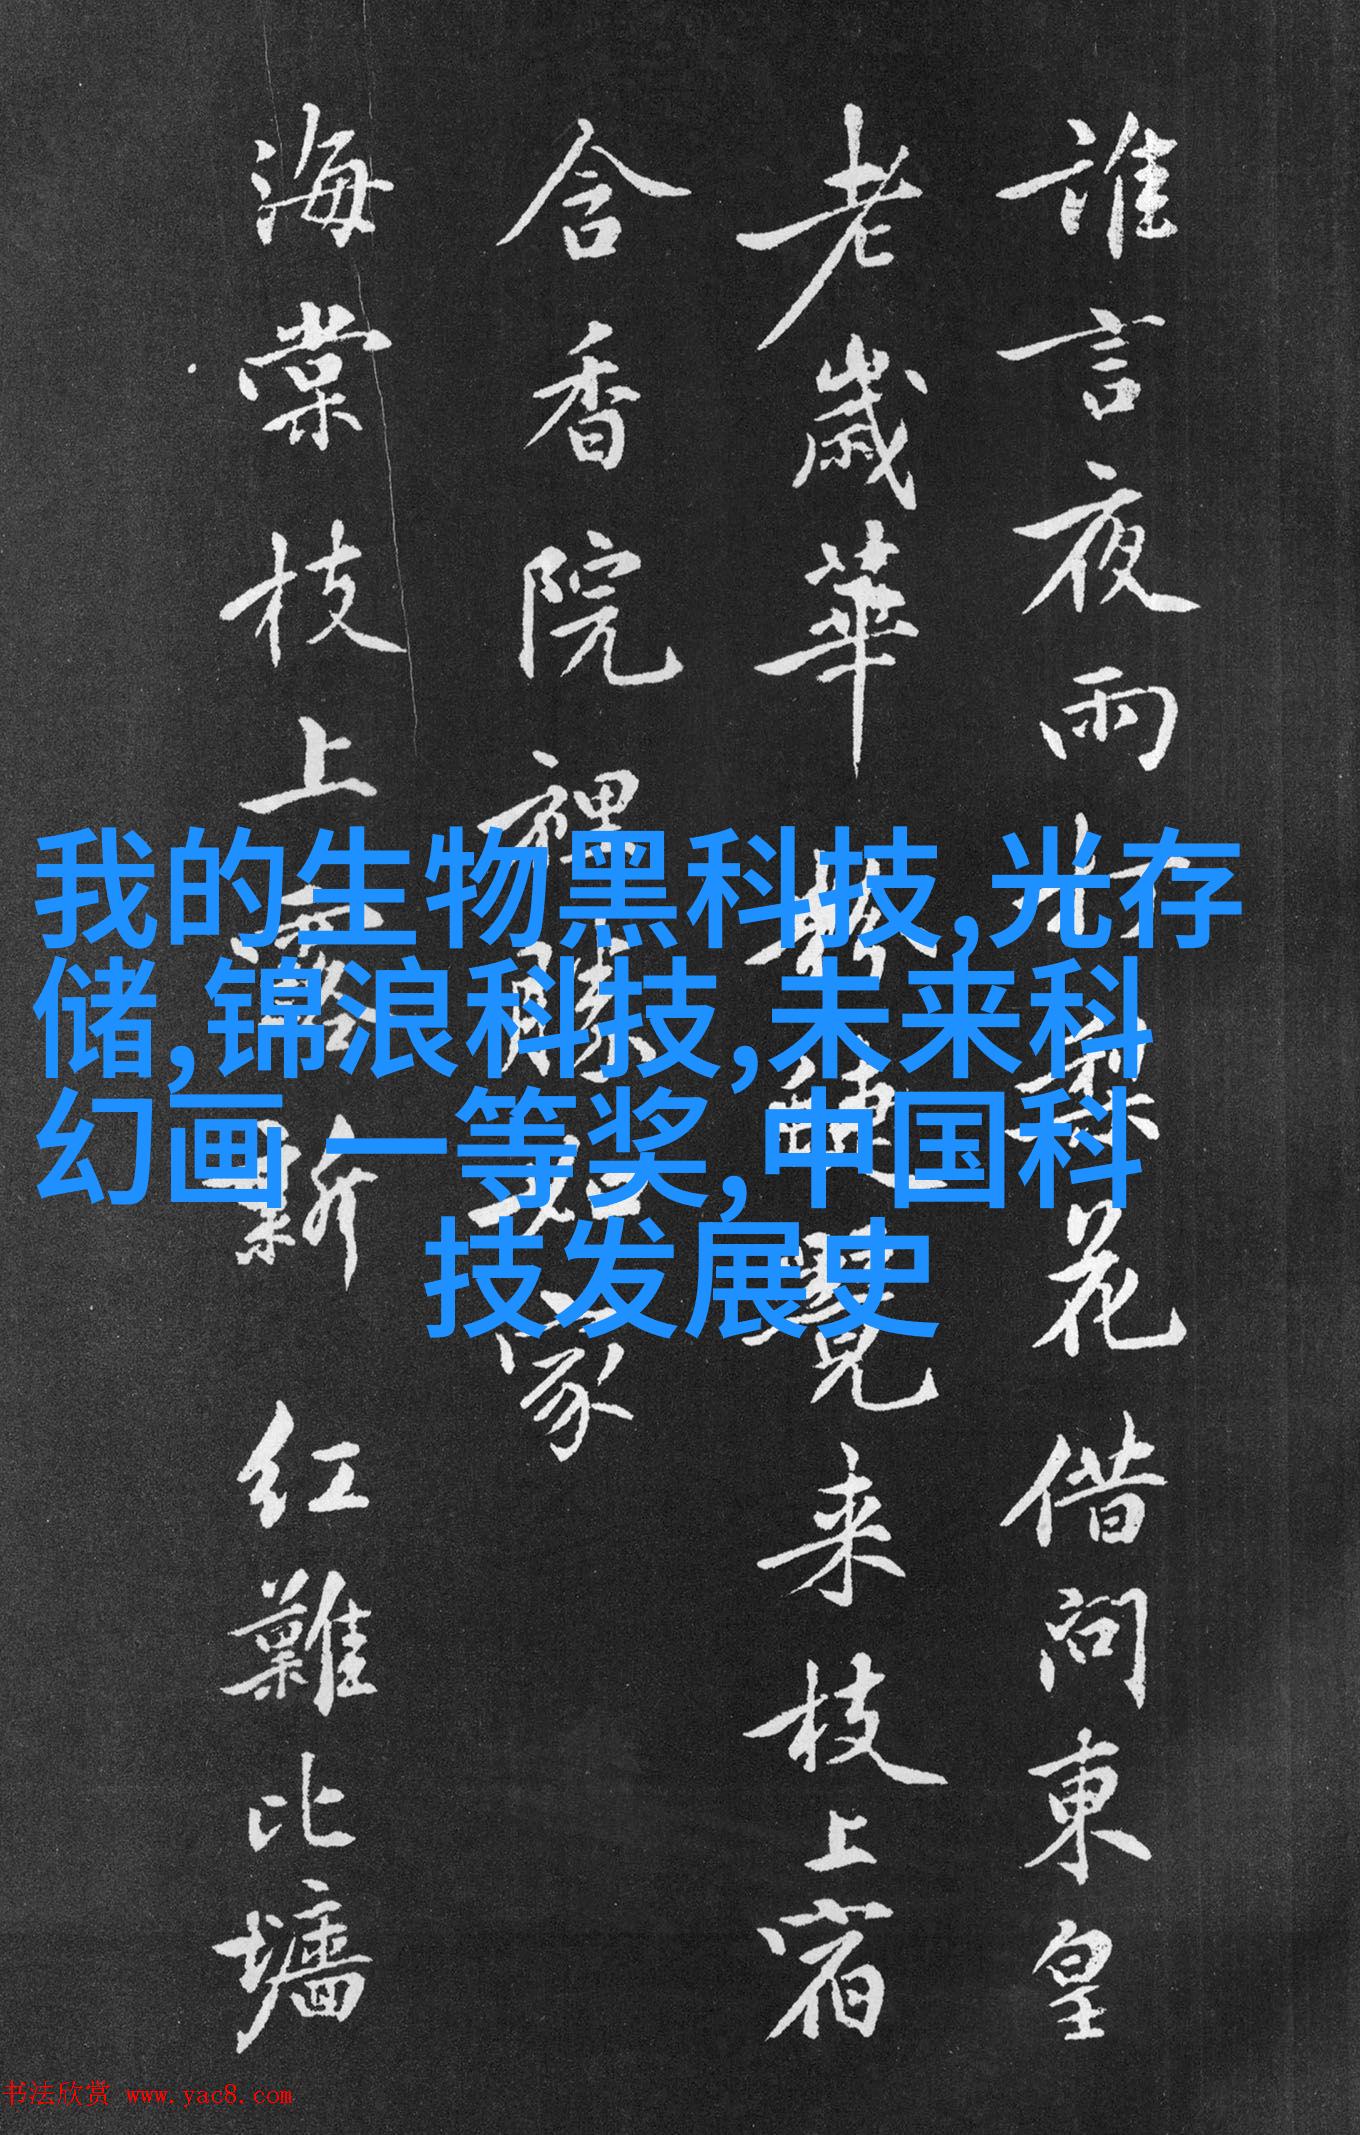 誰言夜雨打梨花借問東皇
老歲華蝶覺来枝上宿
含香院裡勝家
海棠枝上新红難比墻
我的生物黑科技,光存
储,锦浪科技,未来科
幻画 一等奖,中国科
技发展史
书法欣赏 www.yac8.com